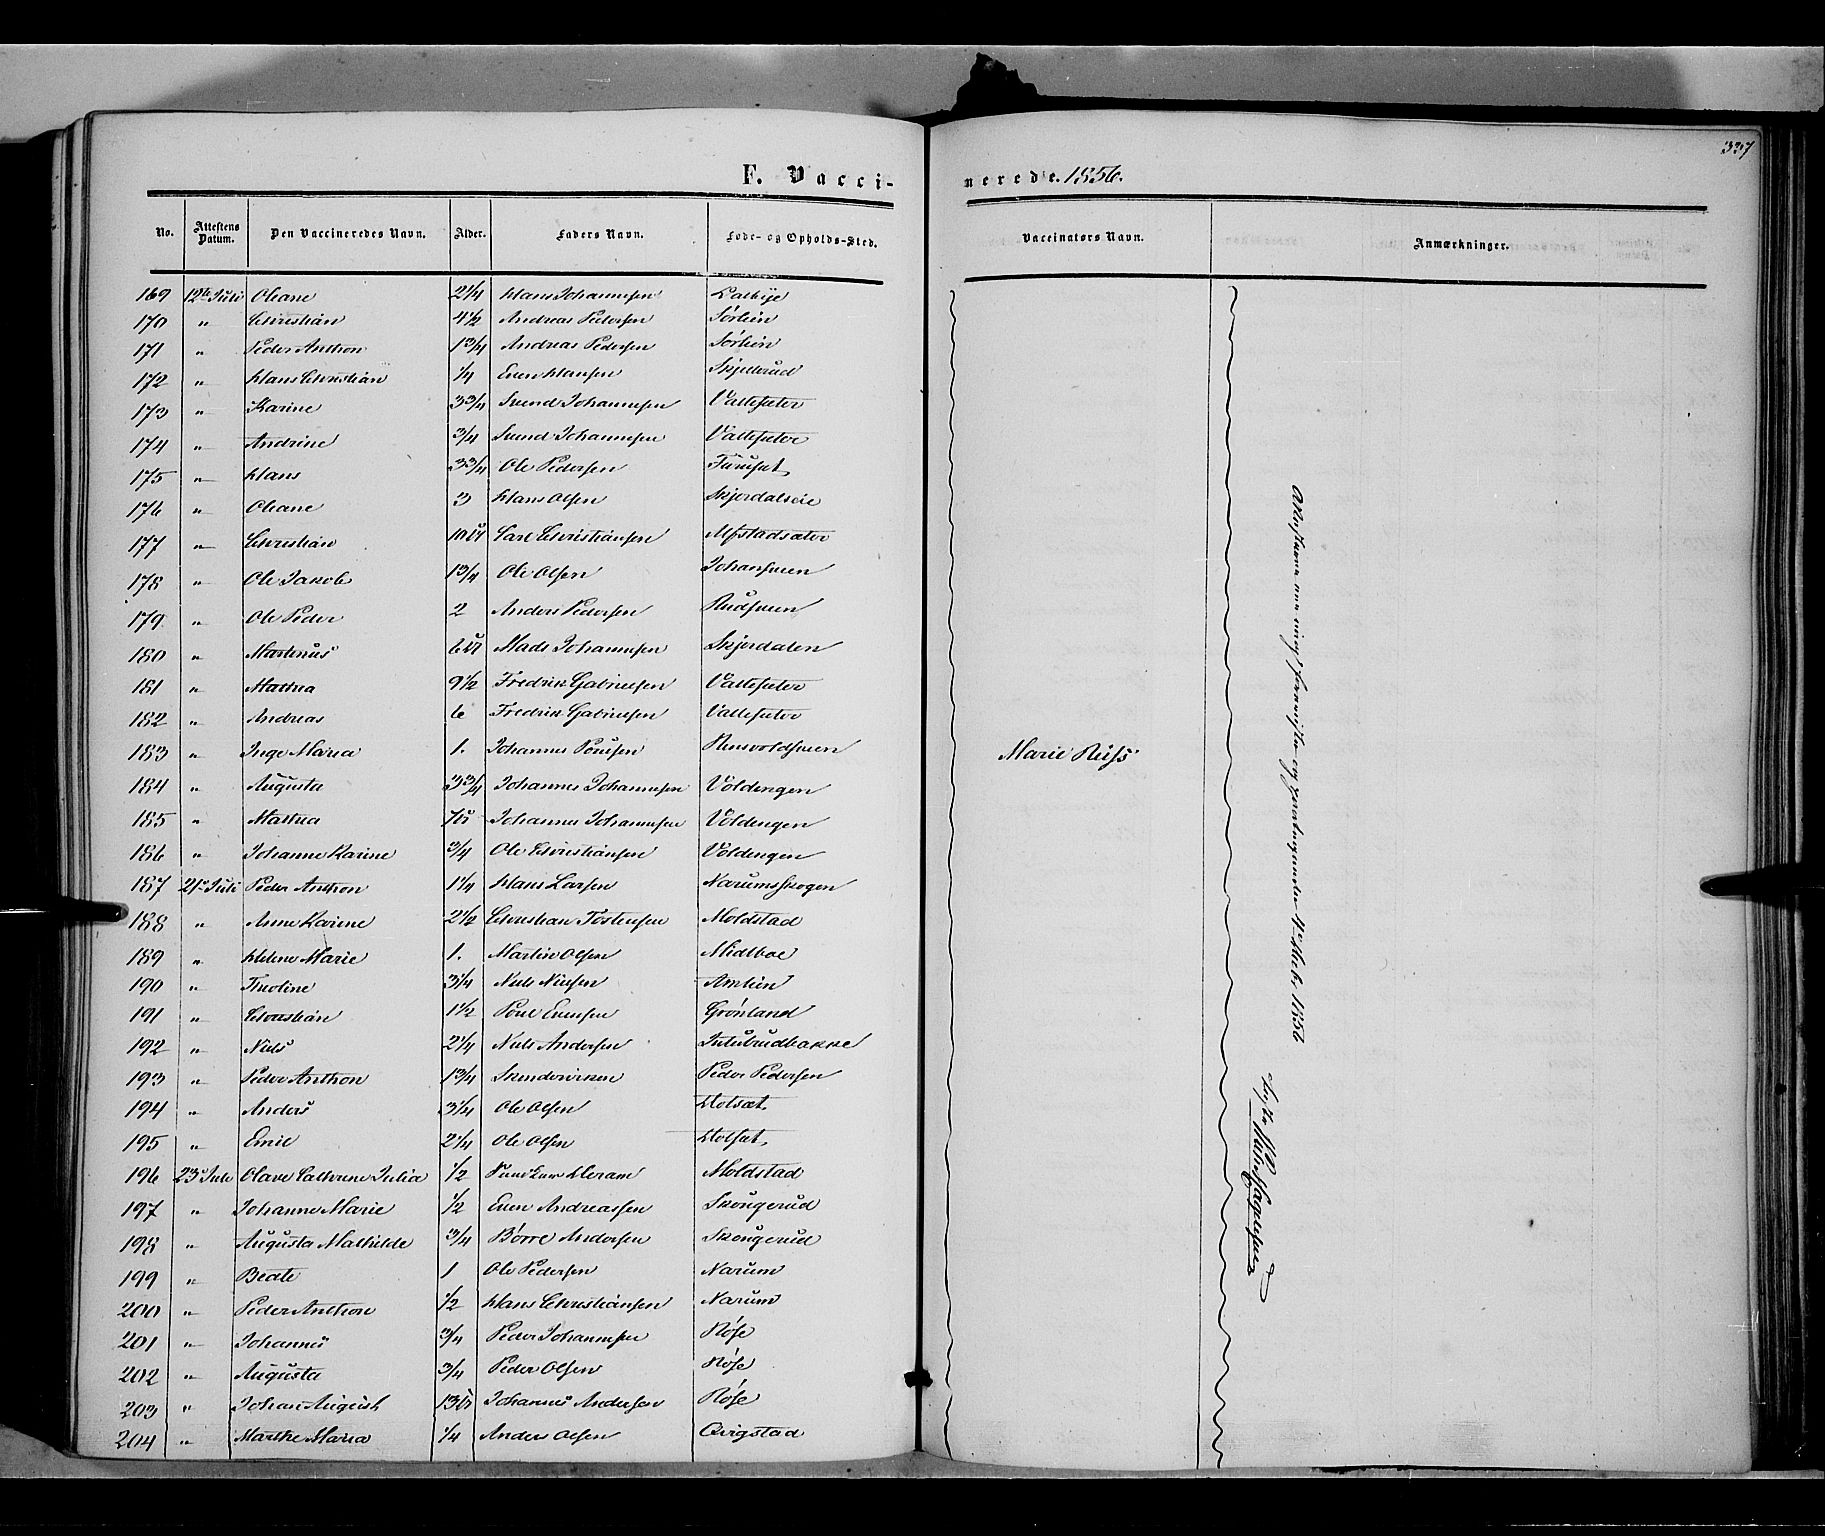 337
F. Vacci-
nerede. 1856.
No. Attestens Datum. Den Vaccineredes Navn. Alder. Faders Navn. Føde- og Opholds-Sted. Vaccinators Navn. Anmærkninger.
169 12te Juli Oleane 2 1/4 Hans Johannesen
170 " Christian 4 1/2 Andreas Pedersen Sørlien
171 " Peder Anthon 1 3/4 Andreas Pedersen Sørlien
172 " Hans Christian 1/4 Even Hansen Skjellerud
173 " Karine 3 3/4 Svend Johannesen Vallesæter
174 " Andrine 3/4 Svend Johannesen Vallesæter
175 " Hans 3 3/4 Ole Pedersen Furuset
176 " Oleane 3 Hans Olsen Skjerdalseie
177 " Christian Carl Christiansen
178 " Ole Jakob 1 3/4 Ole Olsen Johansveen
179 " Ole Peder 2 Anders Pedersen Rudsveen
180 " Martinus 6 Mads Johannesen Skjerdalen
181 " Mathea 9 1/2 Fredrik Gabrielsen Vallesæter
182 " Andreas 6 Fredrik Gabrielsen Vallesæter
183 " Inge Maria 1. Johannes Poulsen Rensvoldsveen Marie Russ
184 " Augusta 3 3/4 Johannes Johannesen Voldengen
185 " Mathea 7 Johannes Johannesen Voldengen
186 " Johanne Karine 3/4 Ole Christiansen Voldengen
187 21 Juli Peder Anthon 1 1/4 Hans Larsen Narumsskogen
188 " Anne Karine 2 1/2 Christian Tostensen Moldstad
189 " Helene Marie 1. Martin Olsen Midtboe
190 " Theoline 3 1/4 Niels Nielsen Amlien
191 " Christian 1 1/2 Poul Evensen Grønland
192 " Niels 2 1/4 Niels Andersen
193 " Peder Anthon 1 3/4 Peder Pedersen
194 " Anders 3 1/4 Ole Olsen Holsæt
195 " Emil 2 1/4 Ole Olsen Holsæt
196 23 Juli Olave Cathrine Julia 1/2 Moldstad
197 " Johanne Marie 1/2 Even Andreassen Skougerud
198 " Augusta Mathilde 3/4 Børre Andersen Skougerud
199 " Beate 1 Ole Pedersen Narum
200 " Peder Anthon 1/2 Hans Christiansen Narum
201 " Johannes 3/4 Peder Johannesen Røse
202 " Augusta 3/4 Peder Olsen Røse
203 " Johan August 13 Johannes Andersen Røse
204 " Marthe Maria 1/4 Anders Olsen Qvigstad
Attesterne ere mig foreviste og 1856